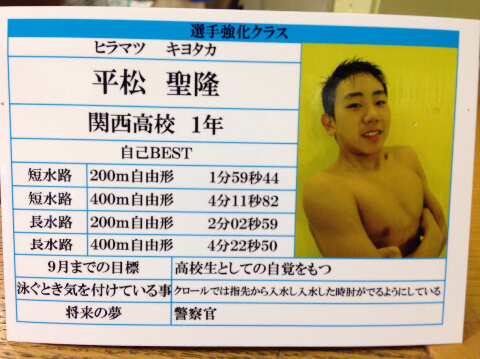 選手強化クラス
ヒラマツ キヨタカ
平松 聖隆
関西高校 1年
自己BEST
短水路 200m自由形 1分59秒44
短水路 400m自由形 4分11秒82
長水路 200m自由形 2分02秒59
長水路 400m自由形 4分22秒50
9月までの目標 高校生としての自覚をもつ
泳ぐとき気を付けている事 クロールでは指先から入水し入水した時肘がでるようにしている
将来の夢 警察官